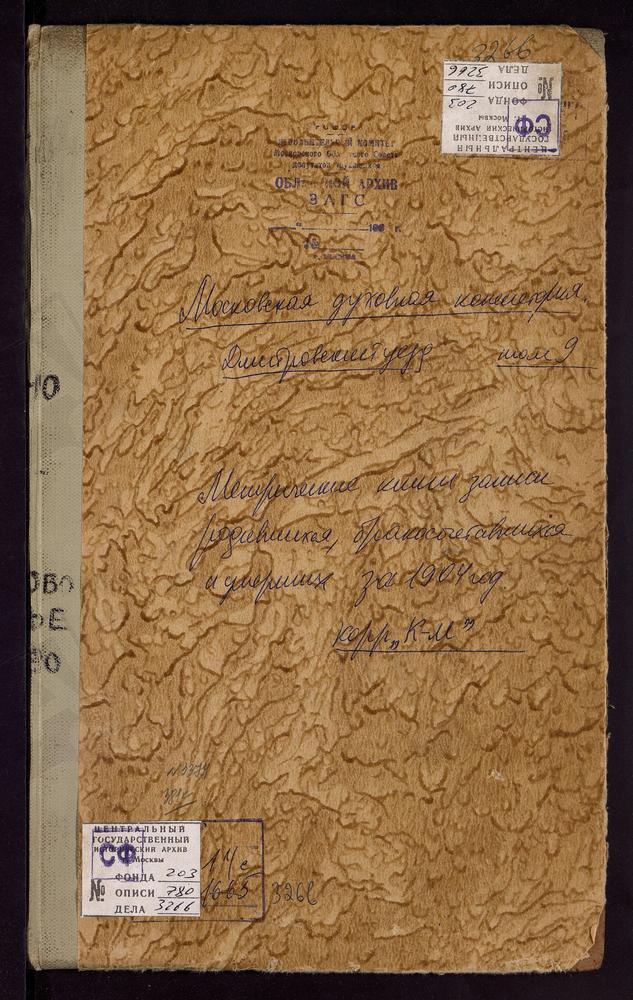 3266
ЦЕНТРАЛЬНЫЙ
ГОСУДАРСТВЕННЫЙ
ИСТОРИЧЕСКИЙ АРХИВ
г. Москвы
СФ
ФОНДА 203
№ ОПИСИ 780
ДЕЛА 3266
РСФСР
ИСПОЛНИТЕЛЬНЫЙ КОМИТЕТ
Московского Областного Совета
депутатов трудящихся
ОБЛАСТНОЙ АРХИВ
ЗАГС
г.
№
г. Москва
Московская духовная консистория.
Дмитровский уезд том 9
Метрические книги записи
родившихся, бракосочетавшихся
и умерших за 1904 год
корр „К-М"
ЦЕНТРАЛЬНЫЙ
ГОСУДАРСТВЕННЫЙ
ИСТОРИЧЕСКИЙ АРХИВ
г. Москвы
СФ
ФОНДА 203
№ ОПИСИ 780
ДЕЛА 3266
3266